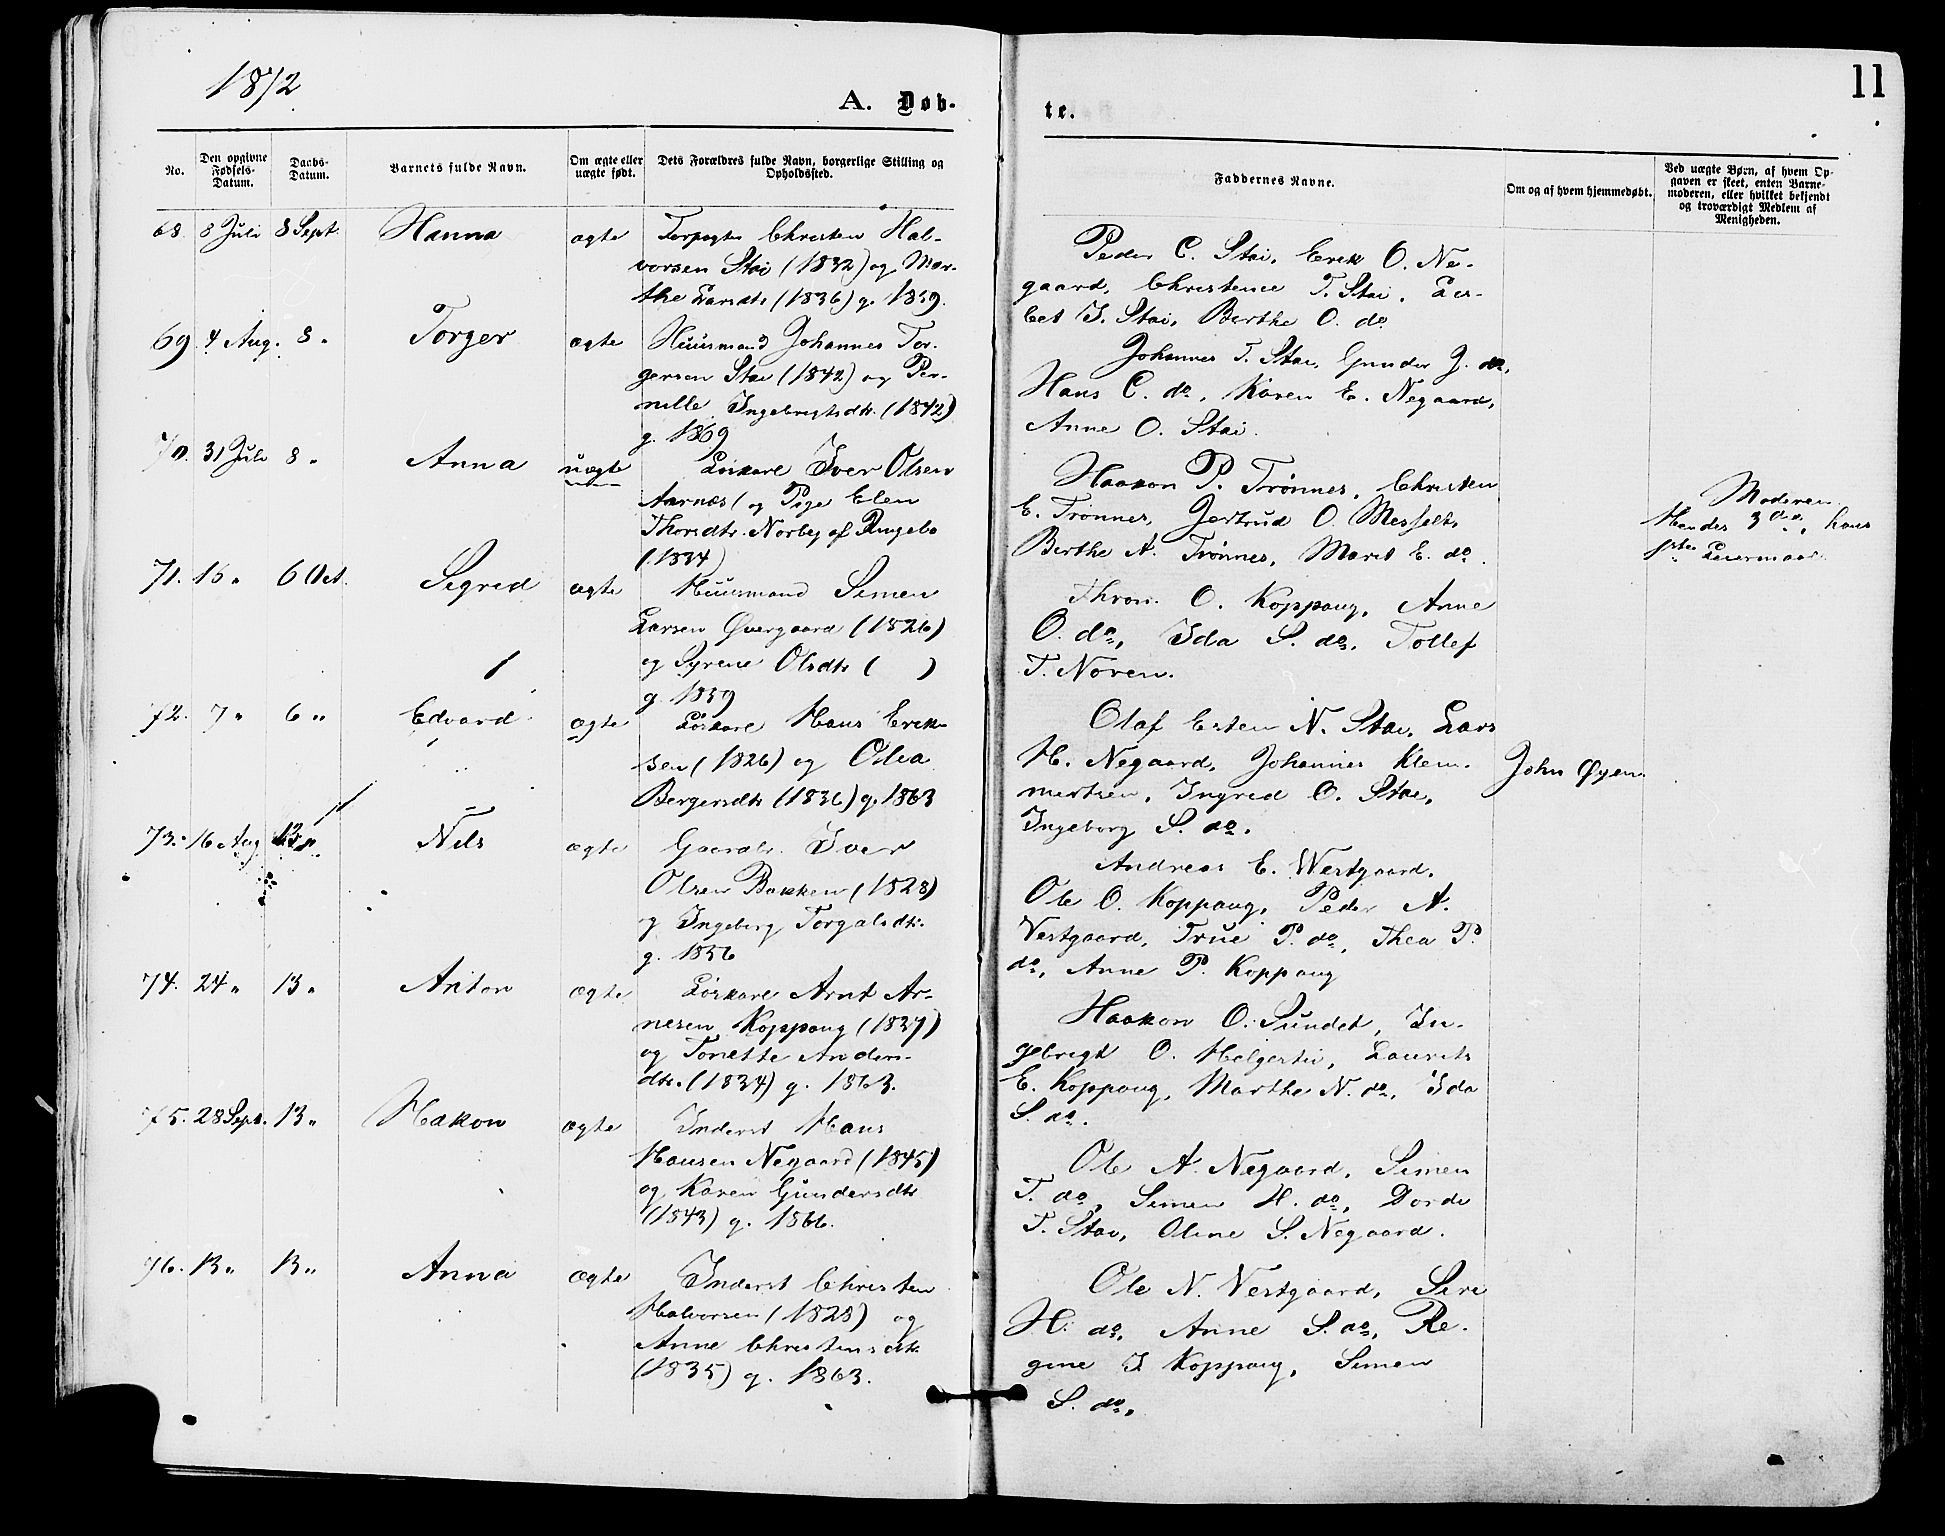 1872
A. Døb-
te.
11
No.
Den opgivne
Fødsels-
Datum.
Daabs-
Datum.
Barnets fulde Navn.
Om ægte eller
uægte født.
Dets Forældres fulde Navn, borgerlige Stilling og
Opholdssted.
Faddernes Navne.
Om og af hvem hjemmedøbt.
Ved uægte Børn, af hvem Op-
gaven er skeet, enten Barne-
moderen, eller hvilket bekjendt
og troværdigt Medlem af
Menigheden.
68. 8 Juli 8 Sept. Hanna ægte Christen Hal-
vorsen Stai (1832) og Mar-
the Larsdtr (1836) g. 1859.
Peder C. Stai, Erik O. Ne-
gaard, Christence T. Stai, Lis-
bet J. Stai, Berthe O. do
69. 4 Aug. 8 " Torger ægte Huusmand Johannes Tor-
gersen Stai (1842) og Per-
nille Ingebrigtsdtr. (1842)
g. 1869
Johannes T. Stai, Gunder J. do,
Hans C. do, Karen E. Negaard,
Anne O. Stai.
70. 31 Juli 8 " Anna uægte Løskarl Iver Olsen
Aarnæs ( og Pige Elen
Thorsdtr. Norbej af Ringebo
(1834)
Haakon P. Trønnes, Christen
E. Trønnes, Gertrud O. Messelt,
Berthe A. Trønnes, Marit E. do.
Moderen.
Hendes 3die, hans
1ste Leiermaal.
71. 15 " 6 Oct. Sigrid ægte Huusmand Simen
Larsen Øvergaard (1826)
og Syrene Olsdtr ( )
g. 1859
Thron O. Koppang, Anne
O. do, Ida S. do, Tollef
T. Noren.
72. 7 " 6 " Edvard ægte Løskarl Hans Erik-
sen (1826) og Olea
Bergersdtr (1836) g. 1863
Olaf Esten N. Stai, Lars
H. Negaard, Johannes Klem-
metsen, Ingrid O. Stai,
Ingeborg S. do.
John Øyen.
73. 16 Aug 13 " Nils ægte Gaardbr. Iver
Olsen Bakken (1828)
og Ingeborg Torgalsdtr.
g. 1856
Andreas E. Westgaard,
Ole O. Koppang, Peder A.
Vestgaard, True P. do, Thea P.
do, Anne P. Koppang
74. 24 " 13 " Anton ægte Løskarl Arnt Ar-
nesen Koppang (1837)
og Tonette Anders-
dtr. (1834) g. 1863.
Haakon O. Sundet, In-
gebrigt O. Helgestu, Laurits
E. Koppang, Marthe N. do, Ida
S. do.
75. 28 Sept. 13 " Hakon ægte Inderst Hans
Hansen Negaard (1845)
og Karen Gundersdtr
(1843) g. 1866.
Ole A. Negaard, Simen
T. do, Simen H. do, Dordi
T. Stai, Oline S. Negaard.
76. 13 " 13 " Anna ægte Inderst Christen
Halvorsen (1828) og
Anne Christensdtr.
(1835) g. 1863.
Ole N. Vestgaard, Siri
H. do, Anne S. do, Re-
gine J. Koppang, Simen
S. do.